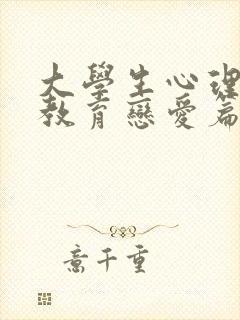 大學生心理
教育戀愛篇
意千重